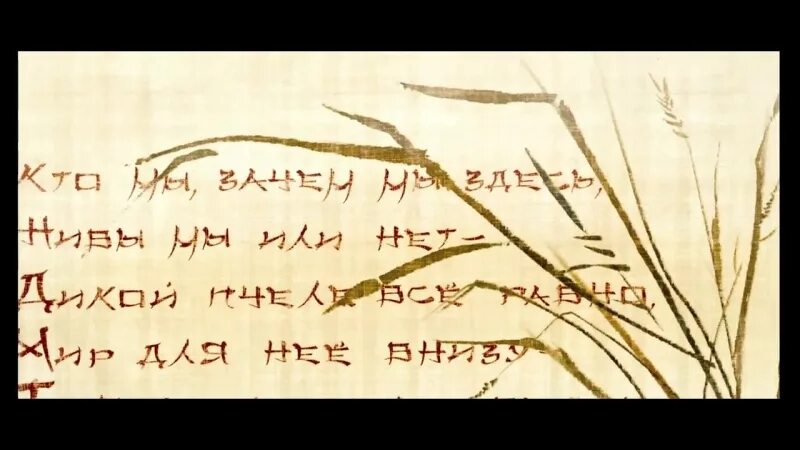 Кто мы, зачем мы здесь,
Живы мы или нет—
Дикой пчеле всё равно,
Мир для неё внизу